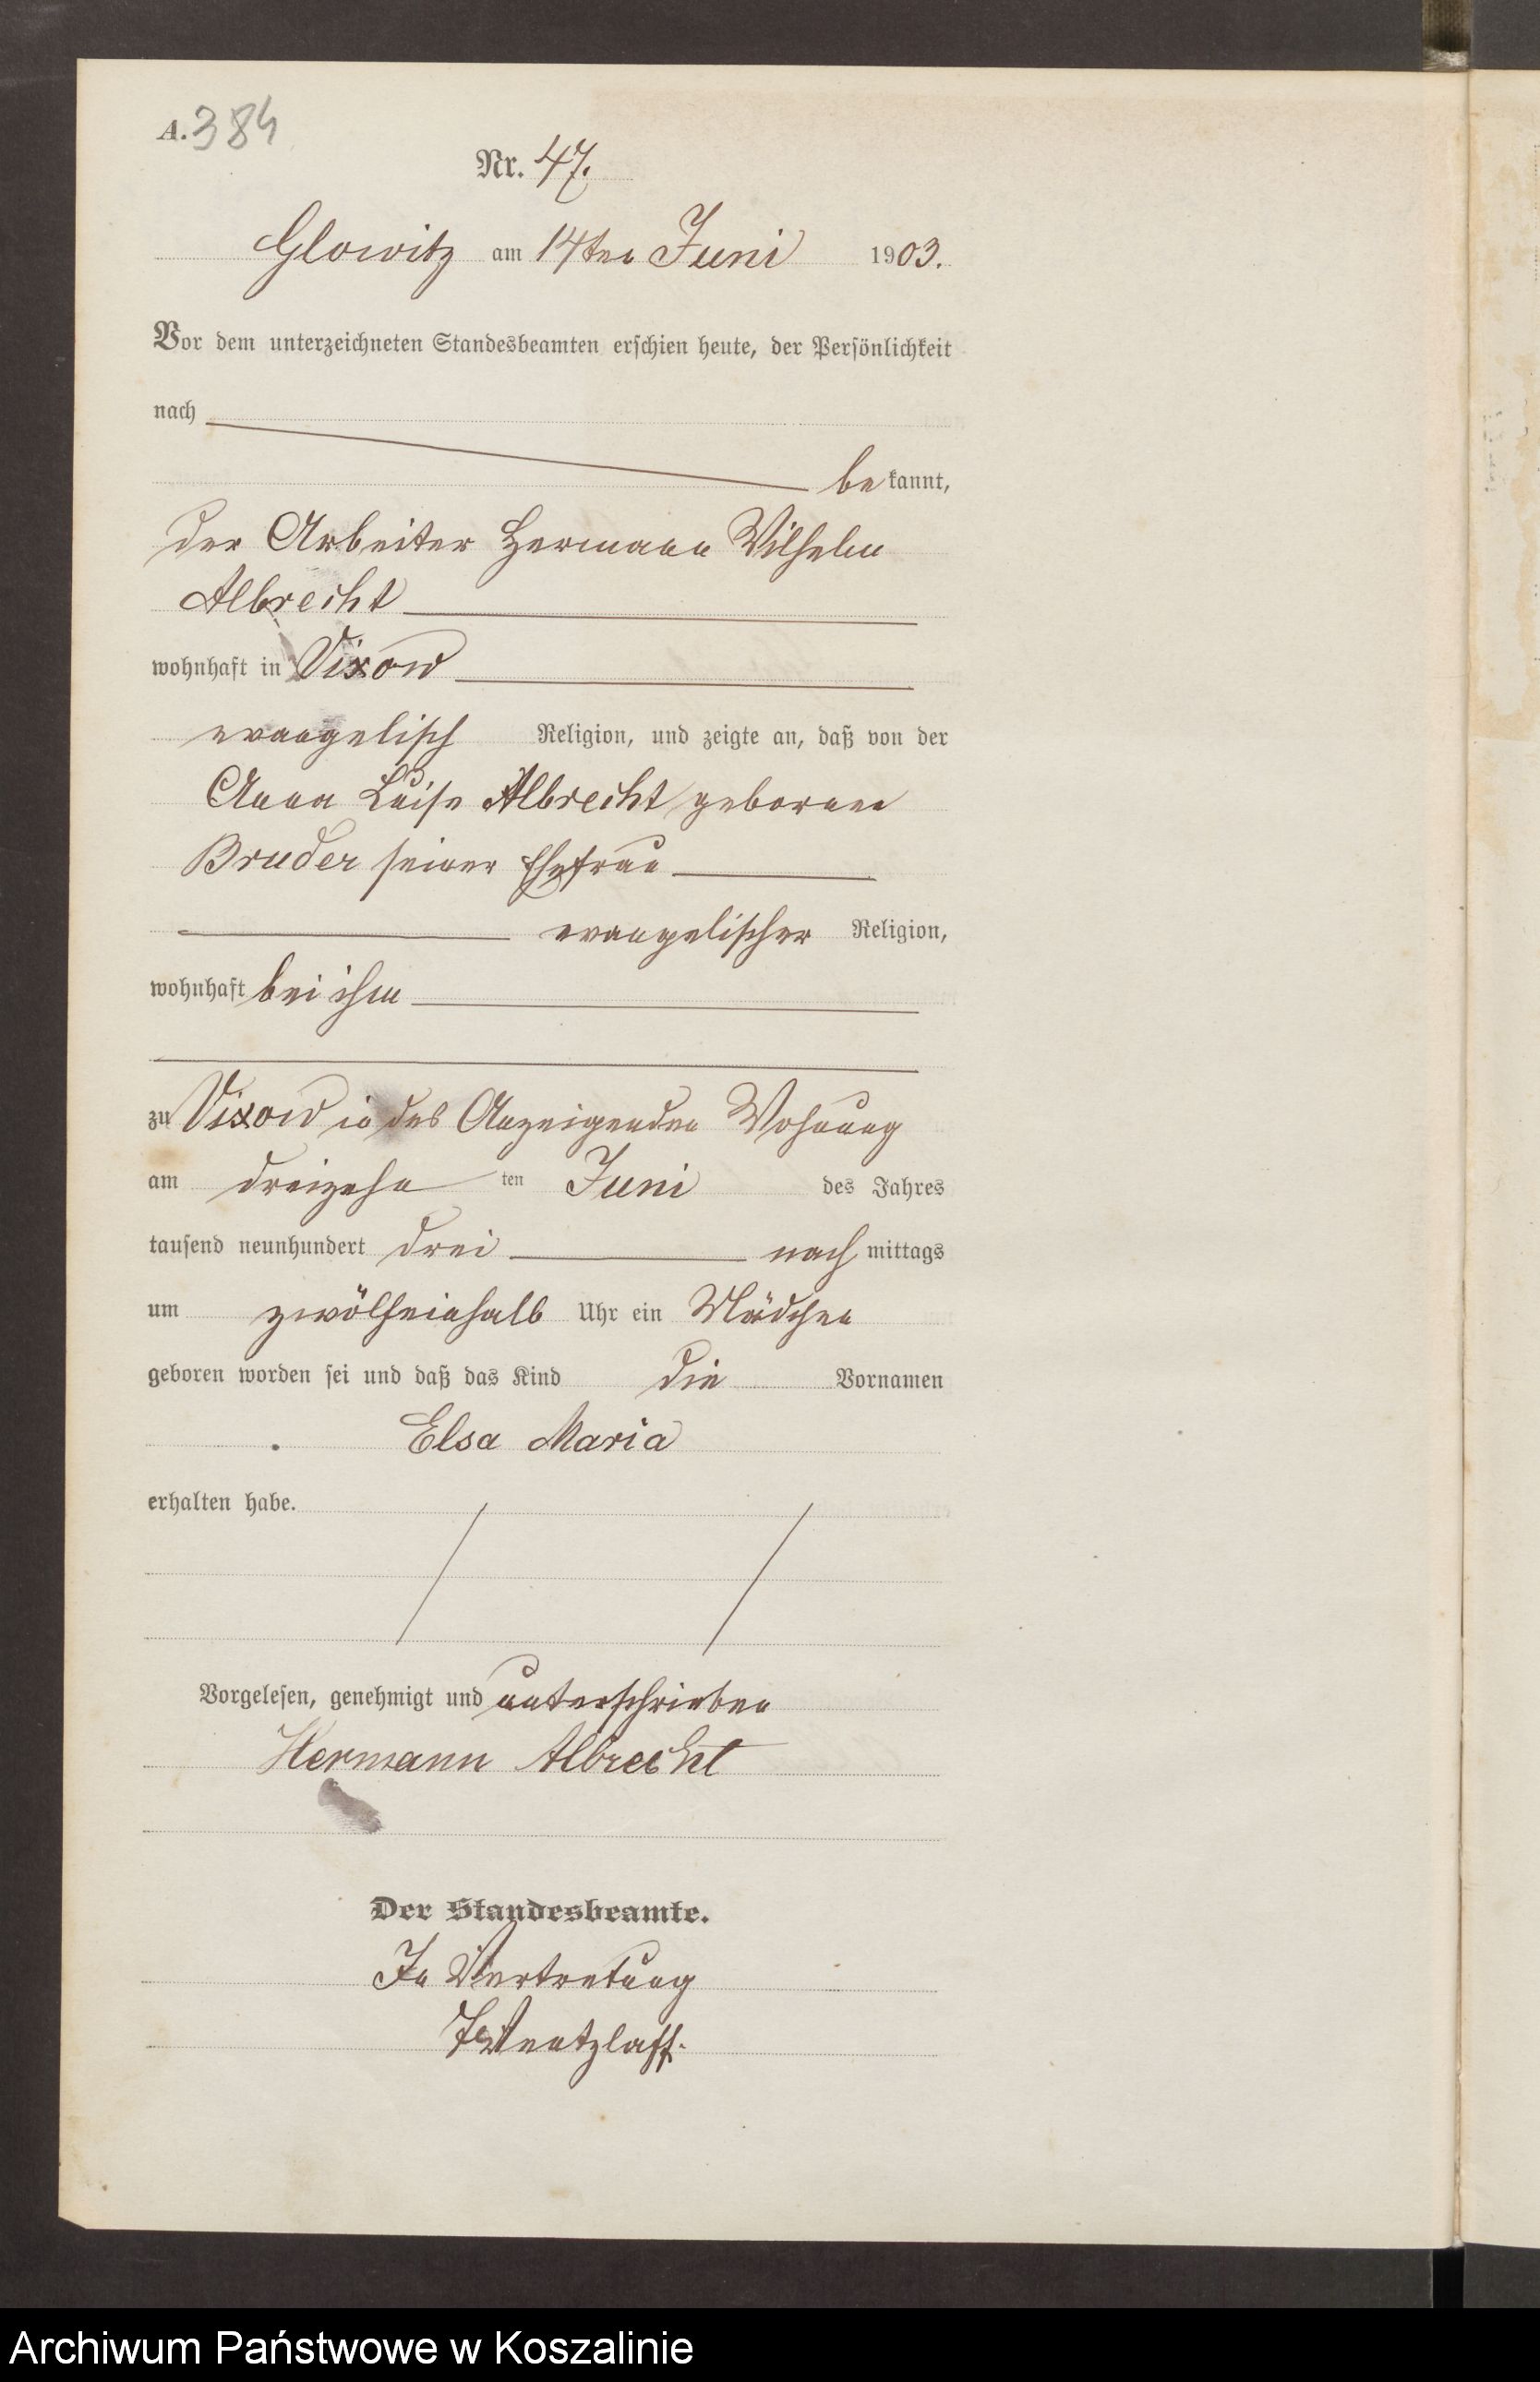 A. 384
Nr. 47.
Glowitz am 14ten Juni 1903.
Vor dem unterzeichneten Standesbeamten erschien heute, der Persönlichkeit
nach
bekannt,
der Arbeiter Hermann Wilhelm
Albrecht
wohnhaft in Vixow
evangelisch Religion, und zeigte an, daß von der
Anna Luise Albrecht geborenen
Bruder seiner Ehefrau
evangelischer Religion,
wohnhaft bei ihm
zu Vixow in des Anzeigenden Wohnung
am dreizehn ten Juni des Jahres
tausend neunhundert drei nach mittags
um zwölfeinhalb Uhr ein Mädchen
geboren worden sei und daß das Kind die Vornamen
Elsa Maria
erhalten habe.
Vorgelesen, genehmigt und unterschrieben
Hermann Albrecht
Der Standesbeamte.
In Vertretung
Wentzlaff.
Archiwum Państwowe w Koszalinie